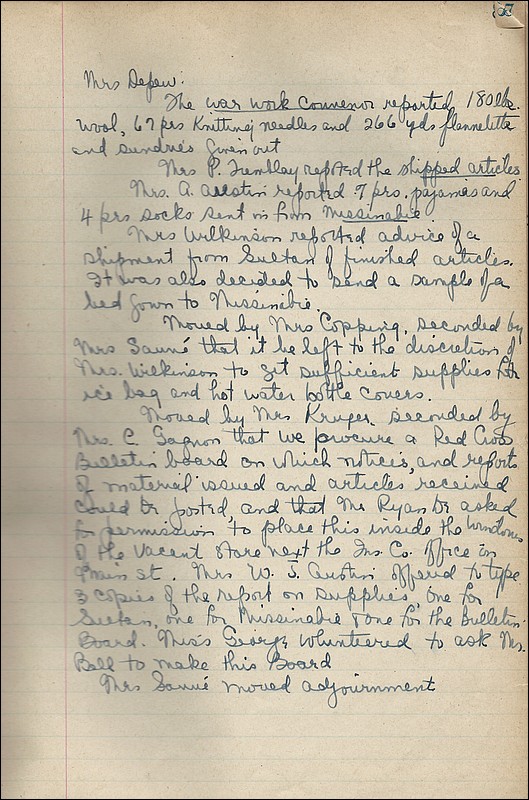 Mrs Depew:
The war work convenor reported 180 lbs
wool, 67 prs Knitting needles and 266 yds flannelette
and sundries given out
Mrs P. Tremblay reported the shipped articles.
Mrs. A. Austin reported 7 prs. pajamas and
4 prs socks sent in from Missinabie.
Mrs Wilkinson reported advice of a
shipment from Sultan of finished articles.
It was also decided to send a sample of a
bed gown to Missinabie.
Moved by Mrs Copping, seconded by
Mrs Sauvé that it be left to the discretion of
Mrs. Wilkinson to get sufficient supplies for
ice bag and hot water bottle covers.
Moved by Mrs Kruger seconded by
Mrs. C. Gagnon that we procure a Red Cross
Bulletin board on which notices, and reports
of material issued and articles received
could be posted, and that Mr Ryan be asked
for permission to place this inside the windows
of the vacant store next the Ins. Co. Office on
Main St. Mrs. W. J. Austin offered to type
3 copies of the report on supplies, one for
Sultan, one for Missinabie & one for the Bulletin
Board. Miss George volunteered to ask Mr.
Ball to make this Board
Mrs Sauvé moved adjournment